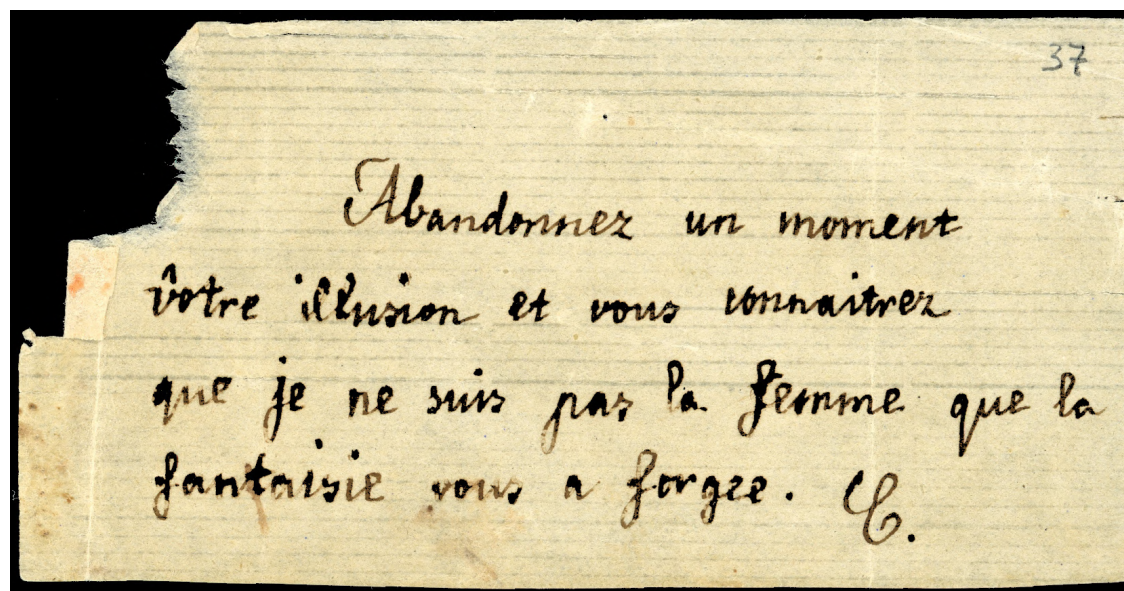 37
Abandonnez un moment
vôtre illusion et vous connaitrez
que je ne suis pas la femme que la
fantaisie vous a forgee. C.